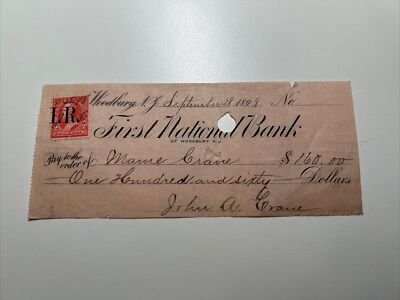 Woodbury, N.J. September 28 1898 No
I.R.
First National Bank
OF WOODBURY, N.J.
Pay to the order of Mame Crane $160.00
One Hundred and sixty Dollars
John A. Crane